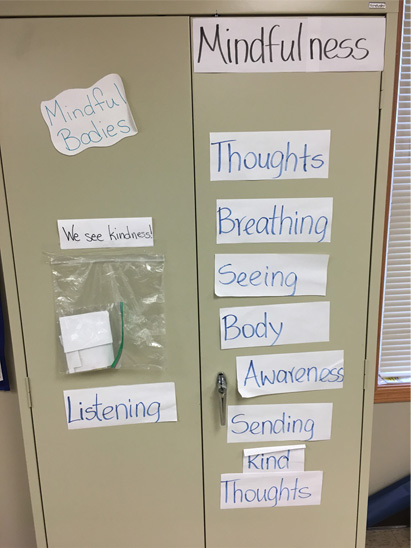 Mindful
Bodies
We see kindness!
Listening
Mindfulness
Thoughts
Breathing
Seeing
Body
Awareness
Sending
Kind
Thoughts